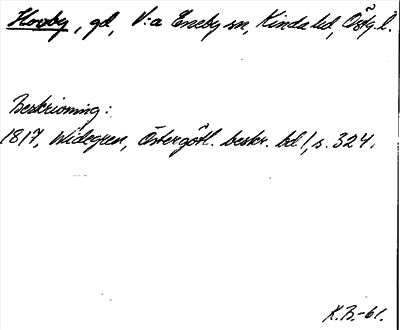 Hovby, gd, V:a Eneby sn, Kinda hd, Östg.l.
Beskrivning:
1817, Widegren, Östergötl. beskr. bd 1, s. 324.
K.B.-61.